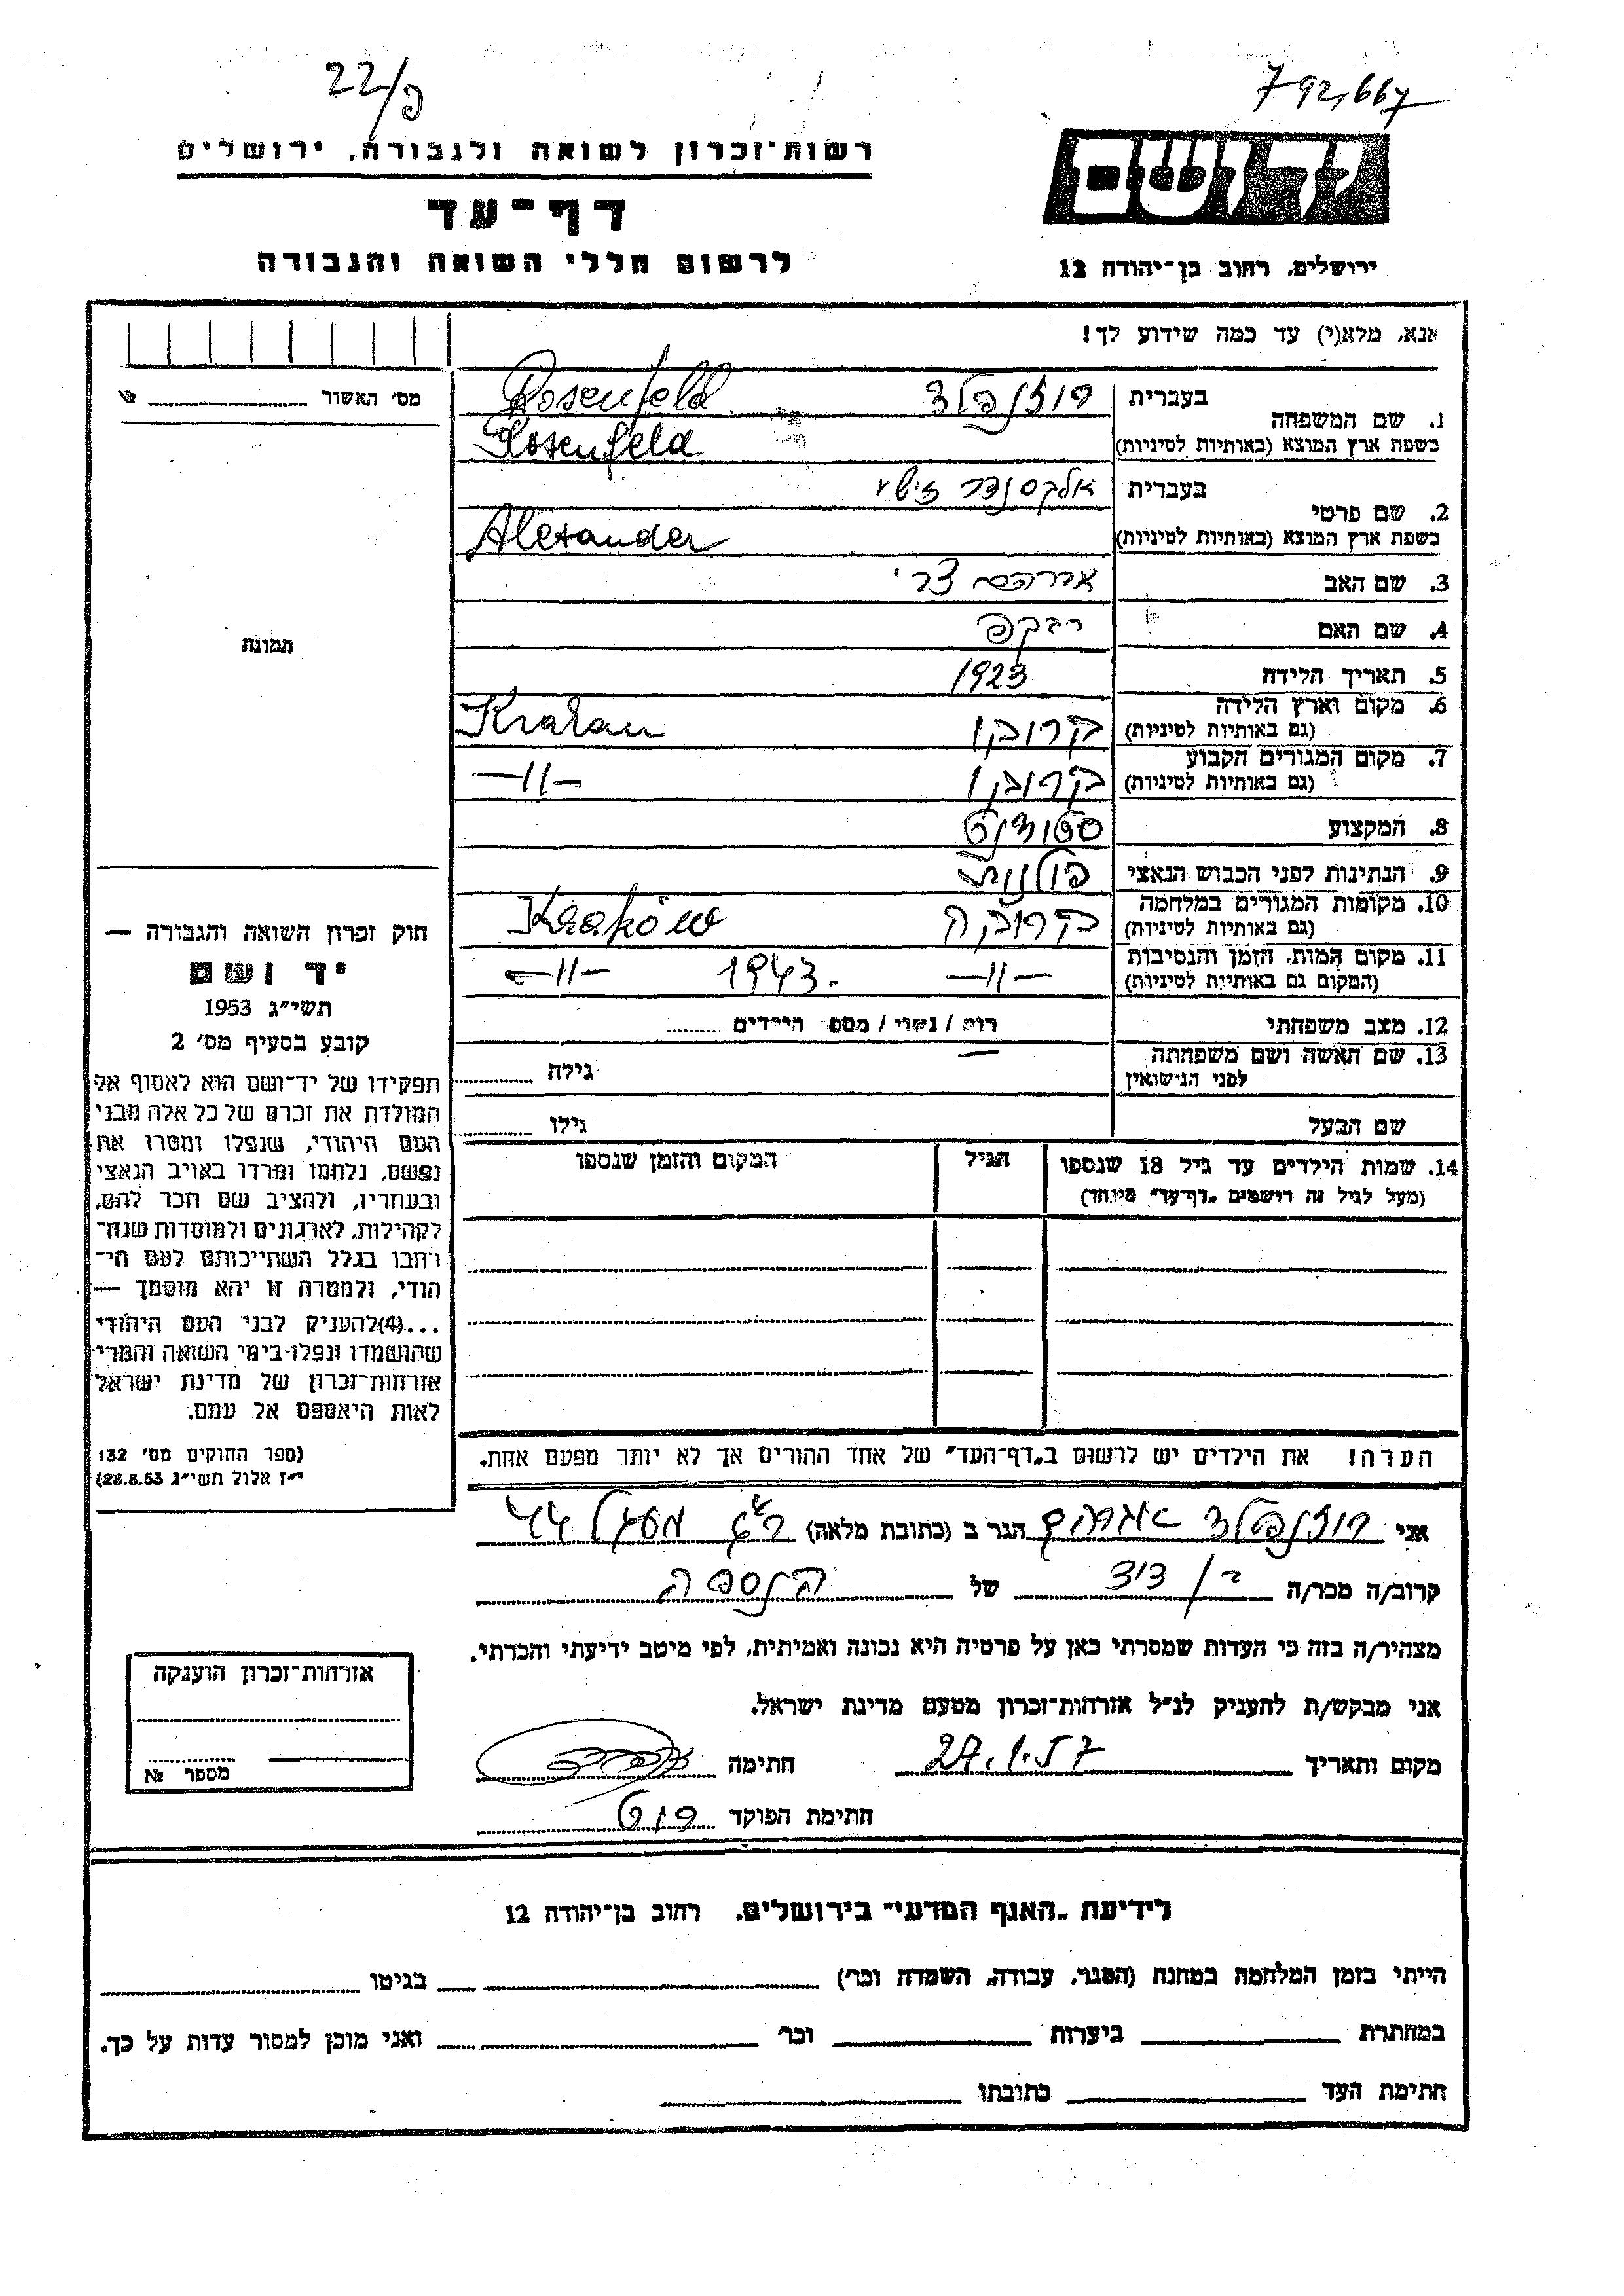 22/פ
792,667
רשות־זכרון לשואה ולגבורה, ירושלים
ידושם
דף־עד
לרשום חללי השואה והגבורה
ירושלים, רחוב בן־יהודה 12
אנא, מלא(י) עד כמה שידוע לך!
מס׳ האשור
1. שם המשפחה
בעברית רוזנפלד Rosenfeld
בשפת ארץ המוצא (באותיות לטיניות) Rosenfeld
2. שם פרטי
בעברית אלכסנדר זישע
בשפת ארץ המוצא (באותיות לטיניות) Alexander
3. שם האב אברהם צבי
4. שם האם רבקה
5. תאריך הלידה 1923
6. מקום וארץ הלידה
(גם באותיות לטיניות) קרוקו Krakau
7. מקום המגורים הקבוע
(גם באותיות לטיניות) קרוקו —״—
8. המקצוע סטודנט
9. הנתינות לפני הכבוש הנאצי פולנית
10. מקומות המגורים במלחמה
(גם באותיות לטיניות) קרוקה Kraków
11. מקום המות, הזמן והנסיבות
(המקום גם באותיות לטיניות) —״— 1943. —״—
12. מצב משפחתי רוק / נשוי / מספ הילדים
13. שם האשה ושם משפחתה
לפני הנישואין גילה
שם הבעל גילו
14. שמות הילדים עד גיל 18 שנספו
(מעל לגיל זה רושמים „דף־עד״ מיוחד)
הגיל
המקום והזמן שנספו
הערה! את הילדים יש לרשום ב„דף־העד״ של אחד ההורים אך לא יותר מפעם אחת.
תמונת
חוק זכרון השואה והגבורה —
יד ושם
תשי״ג 1953
קובע בסעיף מס׳ 2
תפקידו של יד־ושם הוא לאסוף אל
המולדת את זכרם של כל אלה מבני
העם היהודי, שנפלו ומסרו את
נפשם, נלחמו ומרדו באויב הנאצי
ובעוזריו, ולהציב שם וזכר להם,
לקהילות, לארגונים ולמוסדות שנח־
רבו בגלל השתייכותם לעם הי־
הודי, ולמטרה זו יהא מוסמך —
...(4)להעניק לבני העם היהודי
שהושמדו ונפלו בימי השואה והמרי
אזרחות־זכרון של מדינת ישראל
לאות היאספם אל עמם.
(ספר החוקים מס׳ 132
י״ז אלול תשי״ג 28.8.53)
אני רוזנפלד אברהם הגר ב (כתובת מלאה) ר״ג 44
קרוב/ה מכר/ה בן דוד של הנספה
מצהיר/ה בזה כי העדות שמסרתי כאן על פרטיה היא נכונה ואמיתית, לפי מיטב ידיעתי והכרתי.
אני מבקש/ת להעניק לנ״ל אזרחות־זכרון מטעם מדינת ישראל.
מקום ותאריך 27.1.57 חתימה
חתימת הפוקד
אזרחות־זכרון הוענקה
מספר №
לידיעת „האגף המדעי״ בירושלים, רחוב בן־יהודה 12
הייתי בזמן המלחמה במחנה (הסגר, עבודה, השמדה וכר) בגיטו
במחתרת ביערות וכר ואני מוכן למסור עדות על כך.
חתימת העד כתובתו